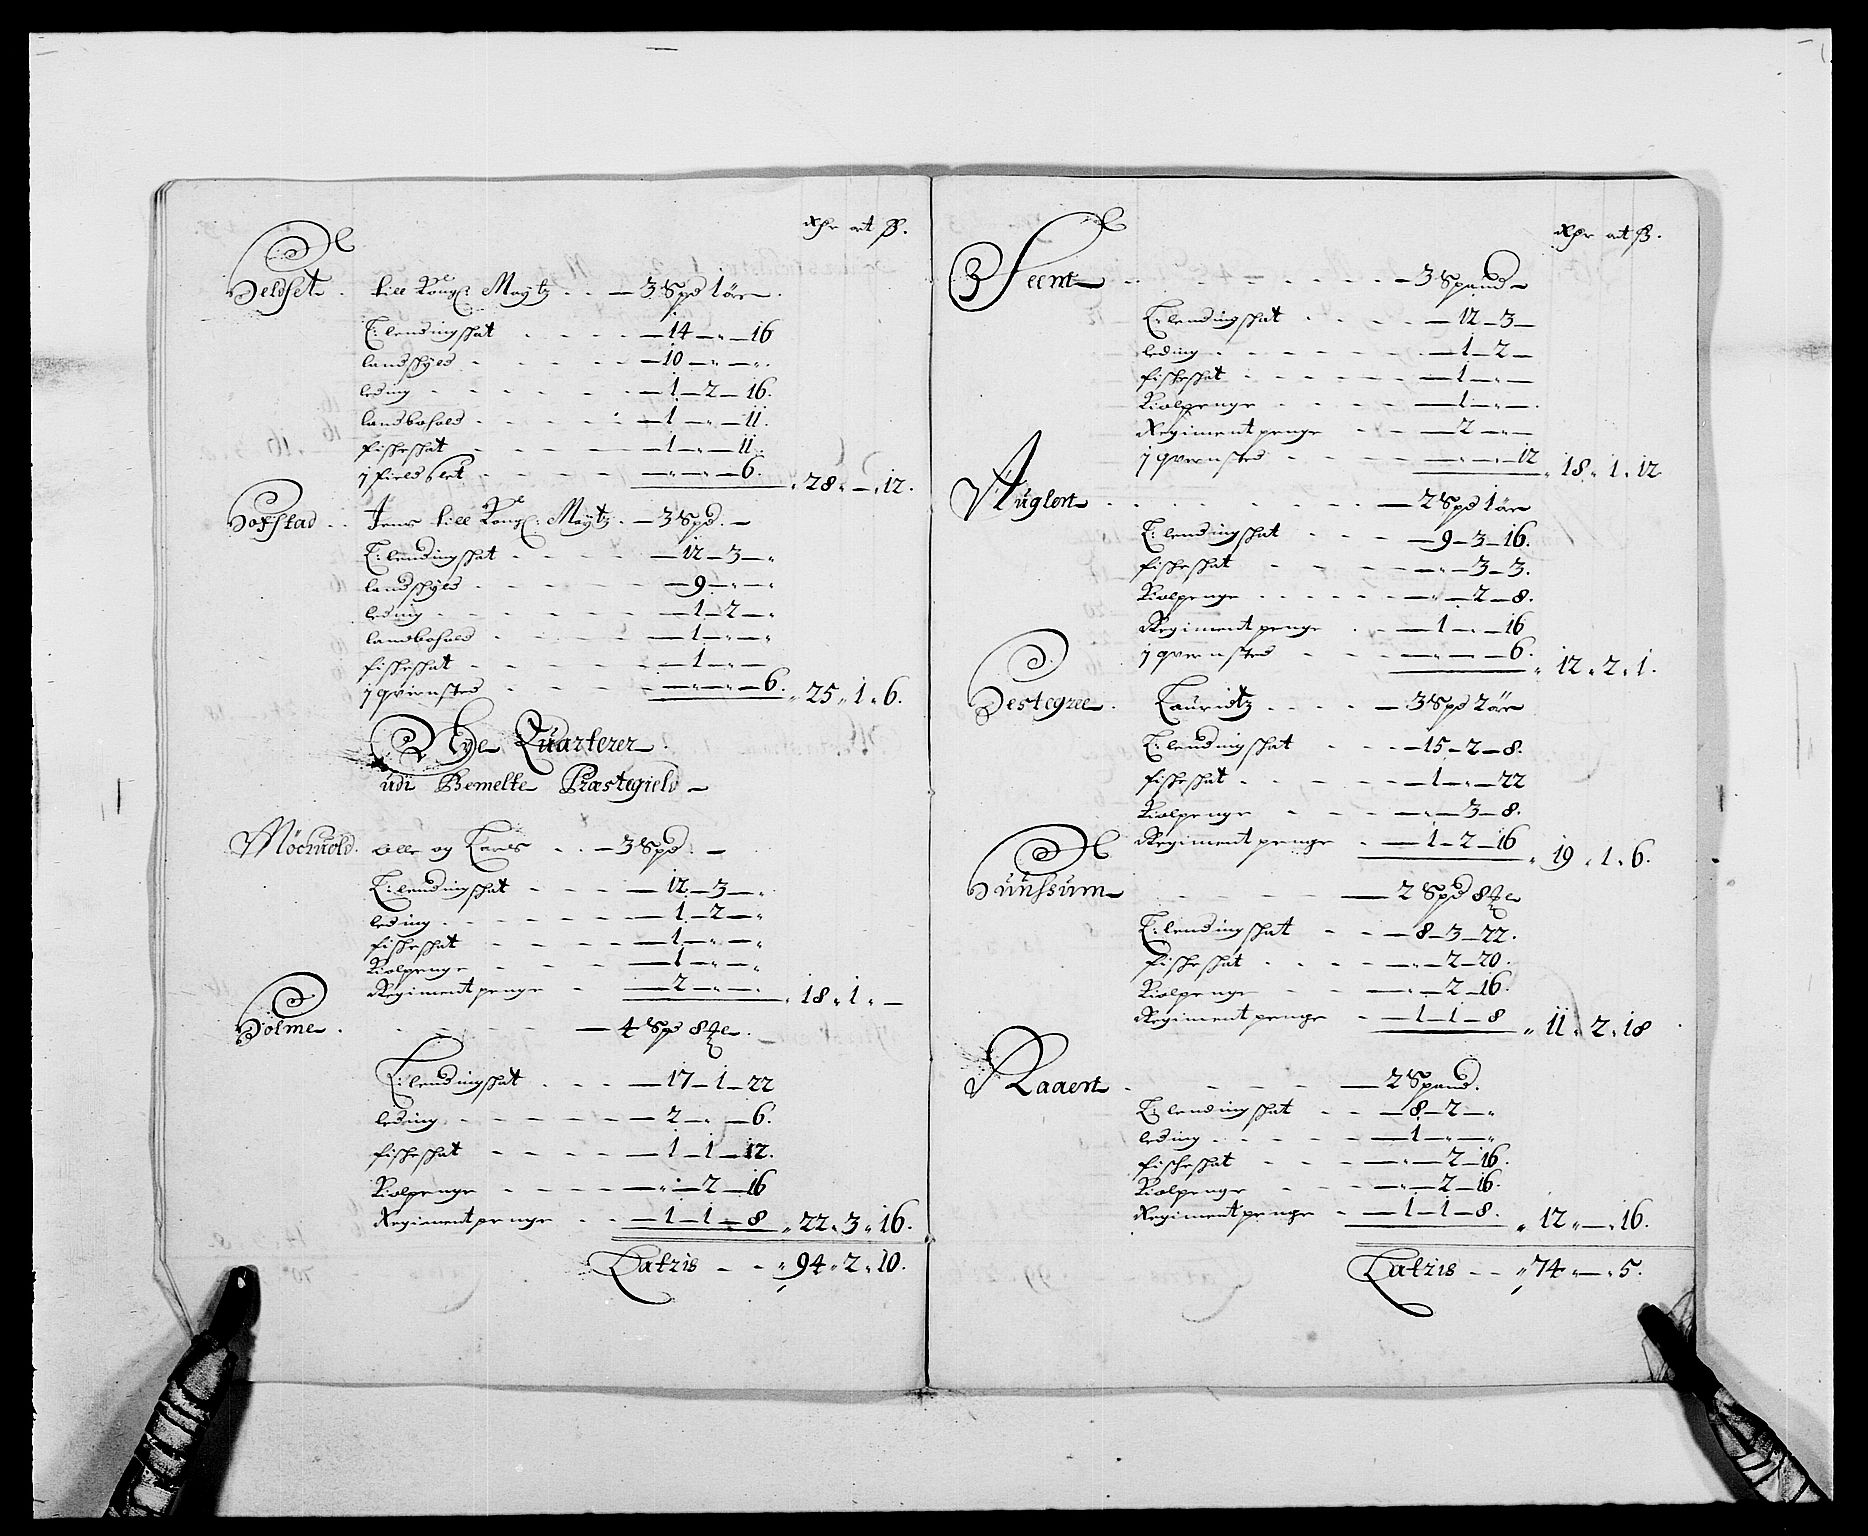 Rdr ort ß.
Heldset . till Kongl: Maytz . . — 3 Spd 1 öre .
T: lendingskat . . . . — 14 — „ — 16
landskyld . . . . . — 10 — „ — „
leding . . . . . . — 1 — 2 — 16.
landbohold . . . . . — 1 — „ — 11.
fiskeskat . . . . . — 1 — „ — 11.
j fieldslet . . . . — „ — „ — 6. „ 28 „ — „ 12.
Hofstad . . Jens till Kongl: Maytz . — 3 Spd. —
T: lendingskat . . . . — 12 — 3 — „
landskyld . . . . . — 9 — „ — „
leding . . . . . . — 1 — 2 — „
landbohold . . . . . — 1 — „ — „
fiskeskat . . . . . — 1 — „ —
j qviensted . . . . — „ — „ — 6. „ 25 „ 1 „ 6.
Bye Quarterer .
udi Bemelte Præstegield —
Möcruold . Olle og Lars . . — 3 Spd . —
T: lendingskat . . . . — 12 — 3 — „
leding . . . . . . — 1 — 2 — „
fiskeskat . . . . . — 1 — „ — „
Kiolpenge . . . . — 1 — „ — „
Regimentpenge . — 2 — „ — „ „ 18 „ 1 „ —
Holme . . . . . — 4 Spd 8 „
T: lendingskat . . . — 17 — 1 — 22
leding . . . . . . — 2 — „ — 6.
fiskeskat . . . . . — 1 — 1 — 12.
Kiolpenge . . . . — „ — 2 — 16
Regimentpenge . . — 1 — 1 — 8 „ 22 „ 3 „ 16.
Latzis — — „ 94 „ 2 „ 10.
Rdr ort ß.
Seem . . . . . . — 3 Spand —
T: lendingskat . . . . — 12 — 3 —
leding . . . . . . — 1 — 2 —
fiskeskat . . . . . — 1 — „ —
Kiolpenge . . . . — 1 — „ — .
Regimentpenge . . — 2 — „ —
j qvernsted . . . . — „ — „ — 12 „ 18 „ 1 „ 12
Auglert . . . . . . — 2 Spd 1 öre
T: lendingskat . . . — 9 — 3 — 16.
fiskeskat . . . . — „ — 3 — 3.
Kiolpenge . . . . . — „ — 2 — 8.
Regimentpenge . . — 1 — „ — 16
j qvernsted . . . — „ — „ — 6. „ 12 „ 2 „ 1.
Hestegree . Lauridtz . . . . — 3 Spd 2 öre
T: lendingskat . . . — 15 — 2 — 8.
fiskeskat . . . . . — 1 — „ — 22
Kiolpenge . . . . — „ — 3 — 8.
Regimentpenge . — 1 — 2 — 16 „ 19 „ 1 „ 6.
Huussum . . . . . — 2 Spd 8
T: lendingskat . . . — 8 — 3 — 22.
fiskeskat . . . . — „ — 2 — 20.
Kiolpenge . . . . — „ — 2 — 16.
Regimentpenge . — 1 — 1 — 8 „ 11 „ 2 „ 18
Raaen . . . . . — 2 Spand .
T: lendingskat . . — 8 — 2 — „
leding . . . . . — 1 — „ — „
fiskeskat . . . . — „ — 2 — 16.
Kiolpenge . . . . — „ — 2 — 16.
Regimentpenge . — 1 — 1 — 8. „ 12 „ — „ 16.
Latzis — — „ 74 „ — „ 5.